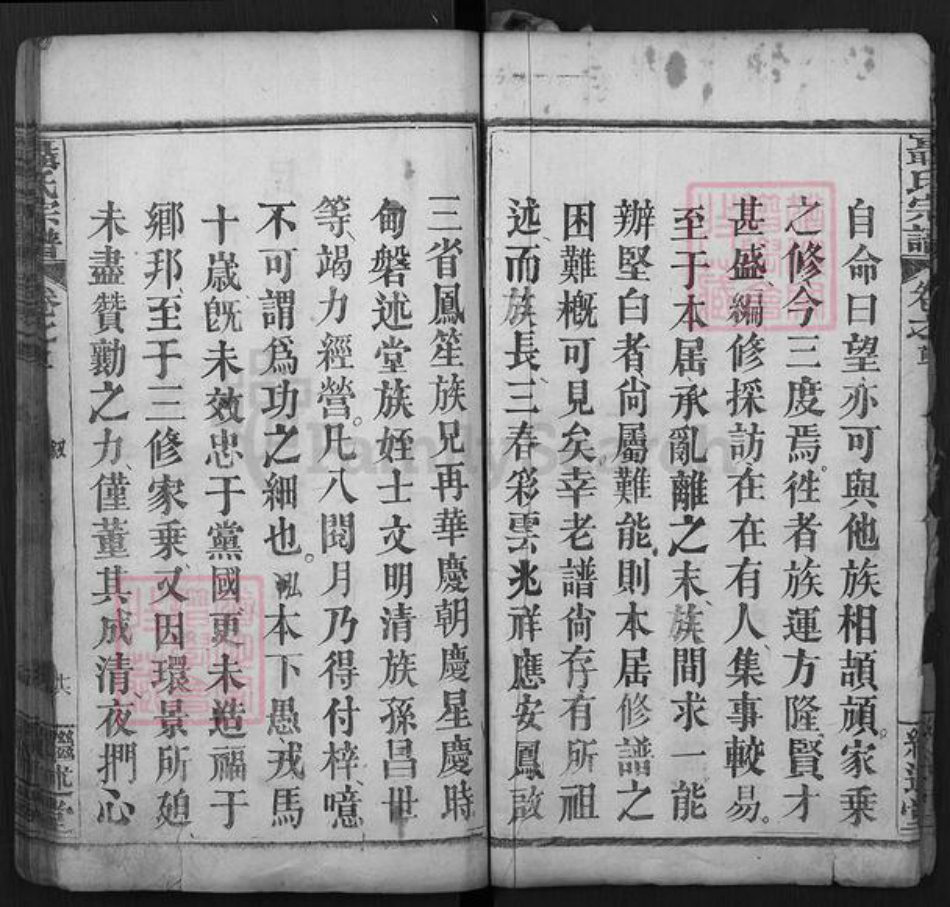 自命曰望亦可與他族相頡頏家乘
之修今三度焉徃者族運方隆賢才
甚盛編修採訪在在有人集事較易。
至于本居承亂離之末、族間求一能
辦堅白者尙屬難能、則本居修譜之
困難槪可見矣。幸老譜尙存有所祖
述而族長三春彩雲兆祥應安鳳啟
三省鳳笙族兄再華慶朝慶星慶時
甸磐述堂族姪士文明清族孫昌世
等竭力經營。凡八閱月乃得付梓、噫
不可謂爲功之細也。泓本下愚戎馬
十歲旣未效忠于黨國更未造福于
鄉邦、至于三修家乘、又因環景所廹
未盡贊勷之力、僅董其成清夜捫心
聶氏宗譜
卷之首
繼述堂
聶氏宗譜
卷之首
叙
共
繼述堂
FamilySearch